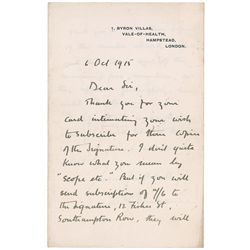 1, BYRON VILLAS,
VALE-OF-HEALTH,
HAMPSTEAD,
LONDON.
6 Oct 1915
Dear Sir,
Thank you for your
card intimating your wish
to subscribe for three copies
of the Signature. I don't quite
know what you mean by
"scope etc." But if you will
send subscription of 7/6 to
the Signature, 12 Fisher St,
Southampton Row, they will